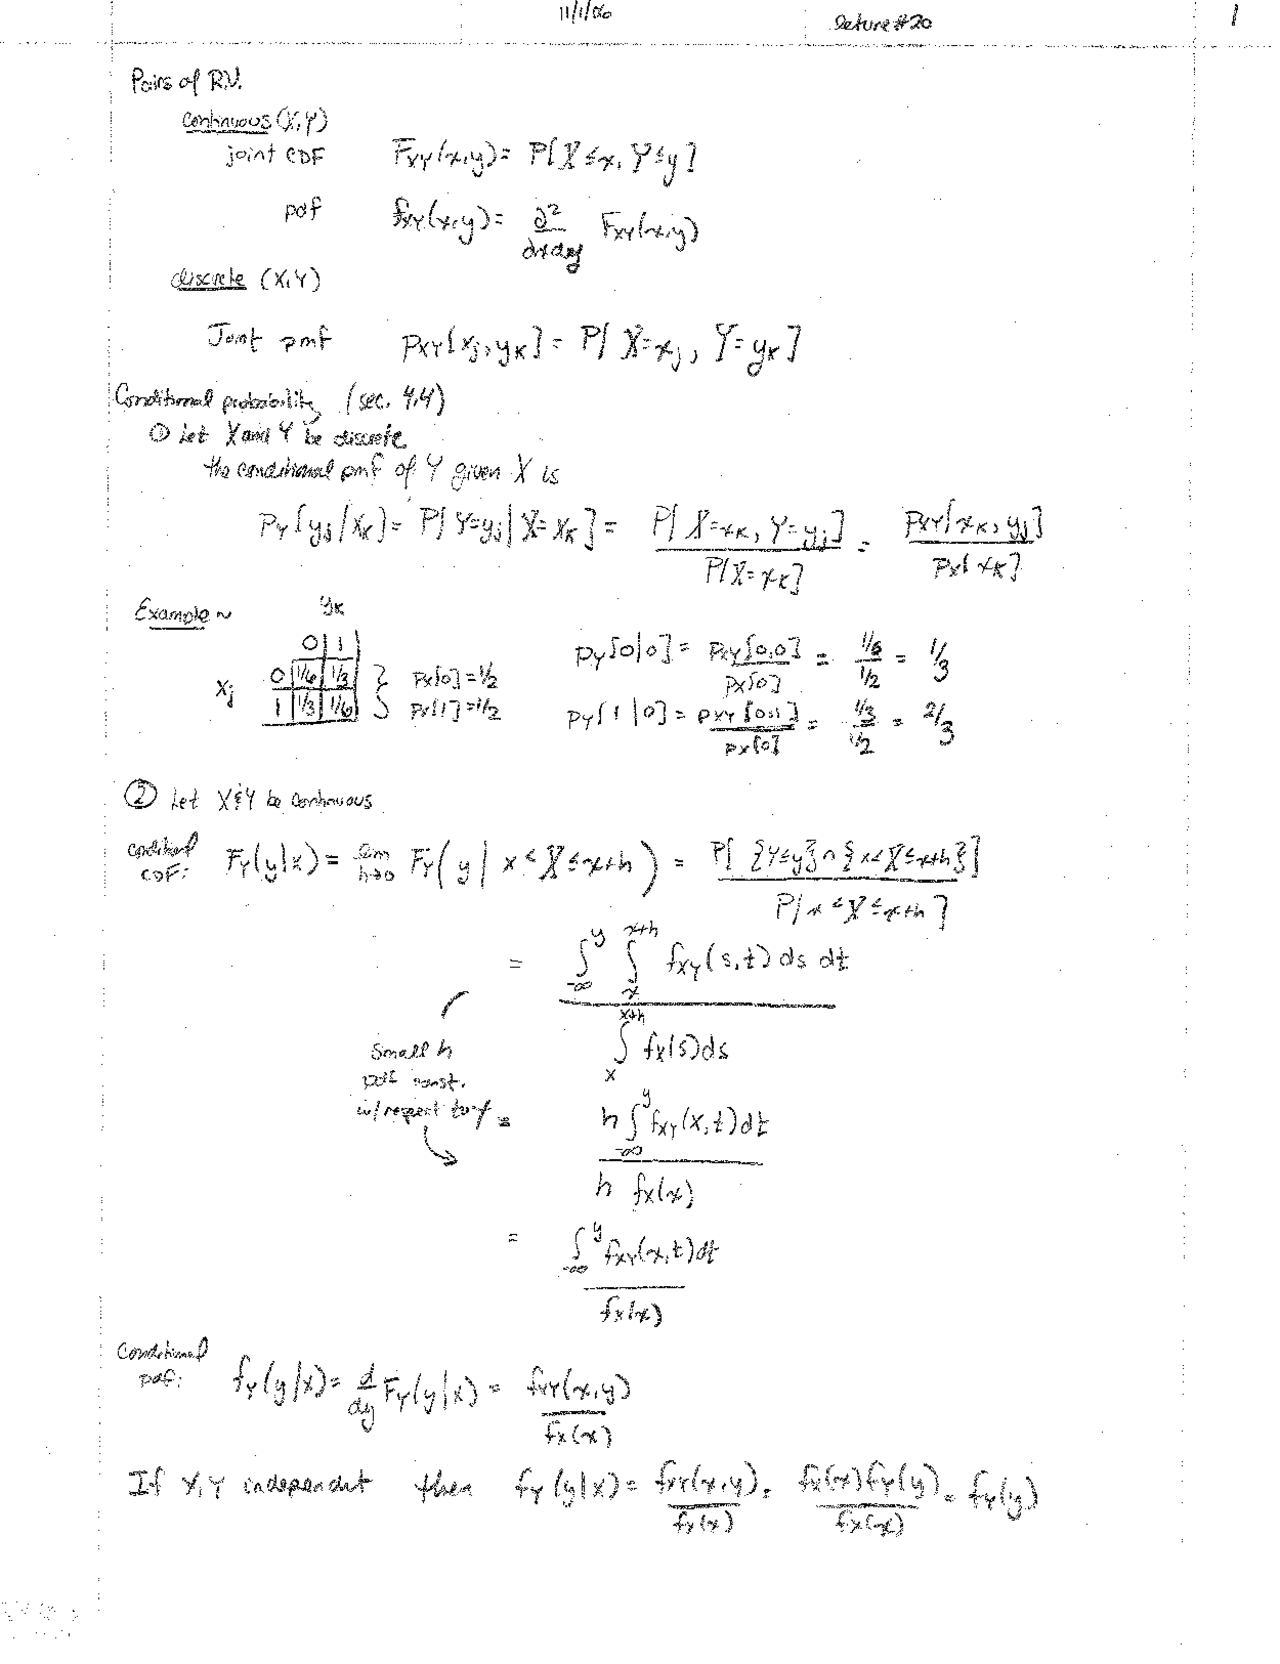 11/1/06 lecture #20 1
Pairs of R.V.
continuous (X,Y)
joint CDF F_XY(x,y) = P[X ≤ x, Y ≤ y]
pdf f_XY(x,y) = ∂²/∂x∂y F_XY(x,y)
discrete (X,Y)
Joint pmf p_XY[x_j, y_k] = P[X = x_j, Y = y_k]
Conditional probability (sec. 4.4)
① Let X and Y be discrete
the conditional pmf of Y given X is
p_Y[y_j|x_k] = P[Y=y_j | X=x_k] = P[X=x_k, Y=y_j] / P[X=x_k] = p_XY[x_k, y_j] / p_X[x_k]
Example ~ y_k
0 1
x_j 0 1/6 1/3 } p_X[0] = 1/2
1 1/3 1/6 } p_X[1] = 1/2
p_Y[0|0] = p_XY[0,0] / p_X[0] = 1/6 / 1/2 = 1/3
p_Y[1|0] = p_XY[0,1] / p_X[0] = 1/3 / 1/2 = 2/3
② Let X & Y be continuous
conditional CDF: F_Y(y|x) = lim h→0 F_Y(y | x ≤ X ≤ x+h) = P[{Y≤y} ∩ {x<X≤x+h}] / P[x ≤ X ≤ x+h]
= ∫_-∞^y ∫_x^x+h f_XY(s,t) ds dt / ∫_x^x+h f_X(s) ds
small h
pdf const.
w/ respect to
= h ∫_-∞^y f_XY(x,t) dt / h f_X(x)
= ∫_-∞^y f_XY(x,t) dt / f_X(x)
Conditional pdf: f_Y(y|x) = d/dy F_Y(y|x) = f_XY(x,y) / f_X(x)
If X,Y independent then f_Y(y|x) = f_XY(x,y) / f_X(x) = f_X(x) f_Y(y) / f_X(x) = f_Y(y)